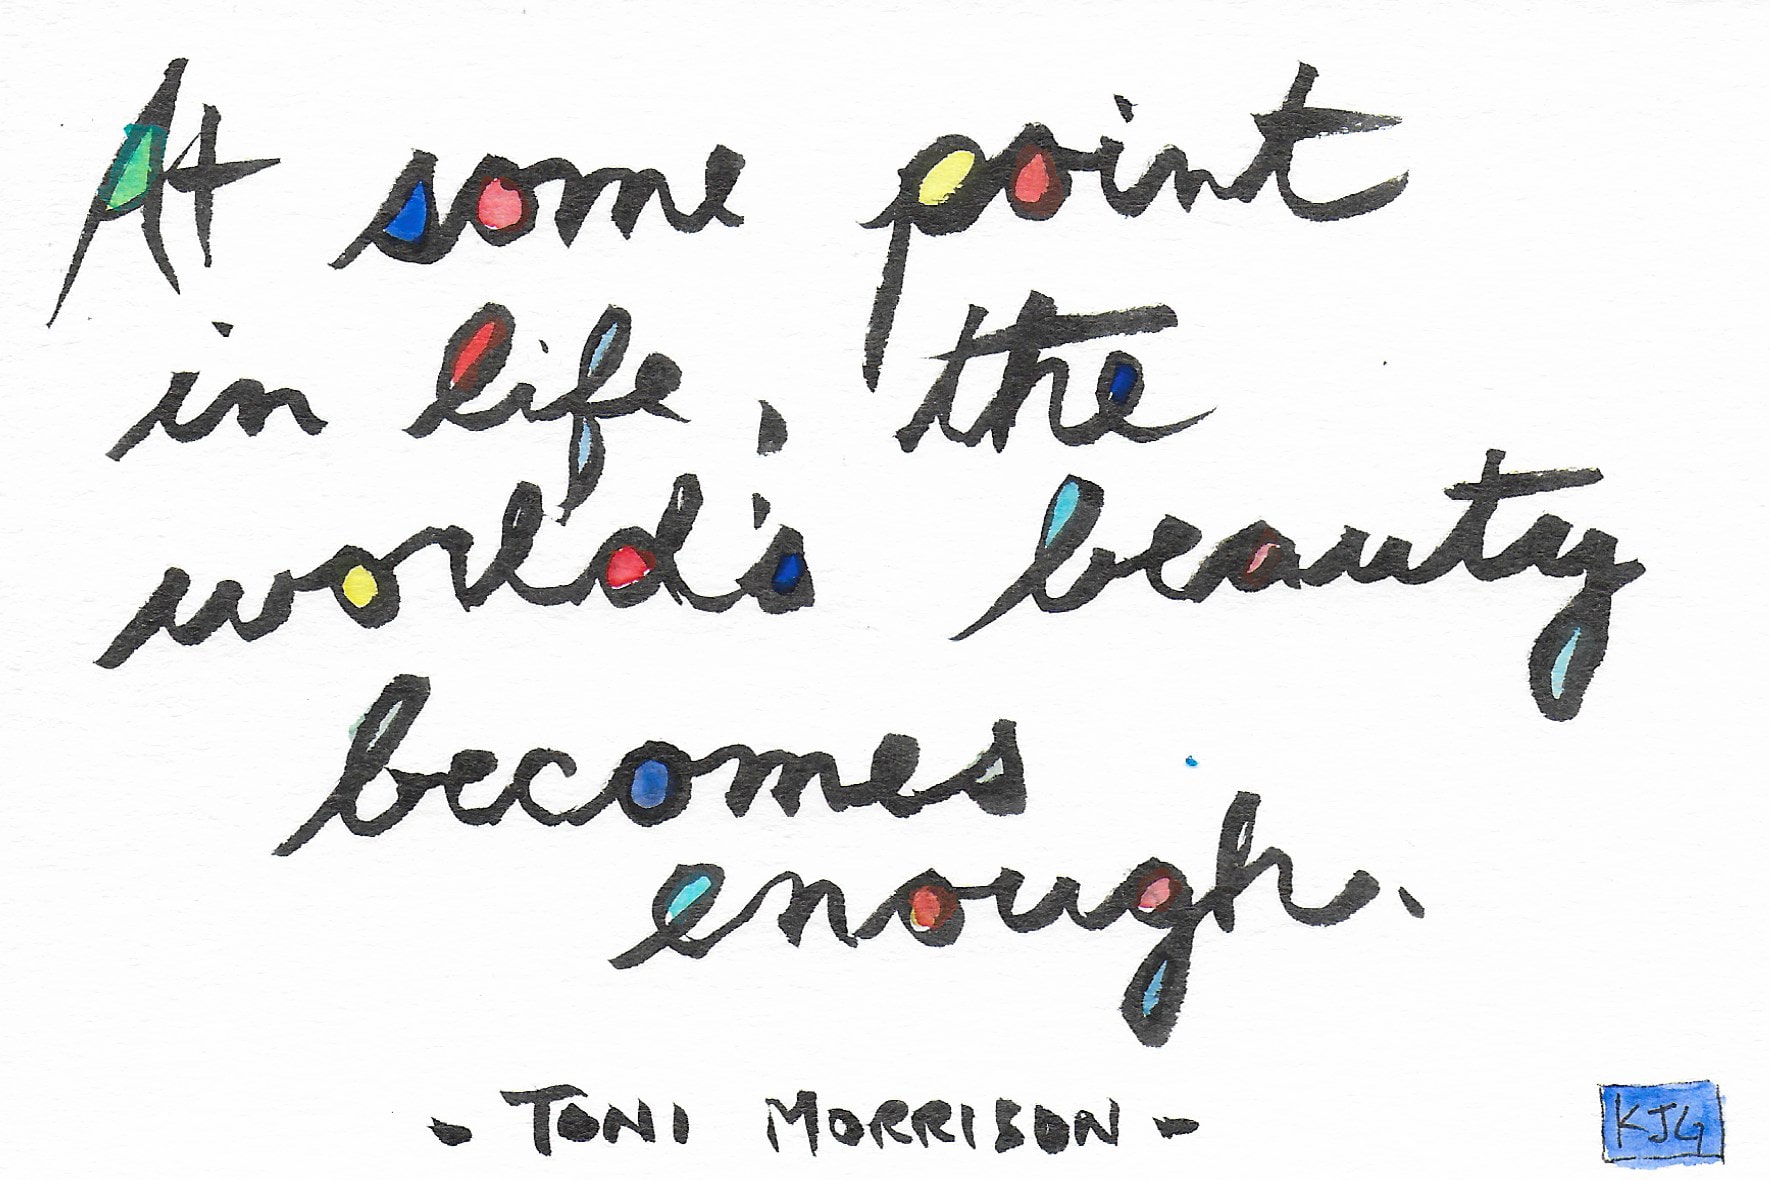 At some point
in life, the
world's beauty
becomes
enough.
- TONI MORRISON -
KJG